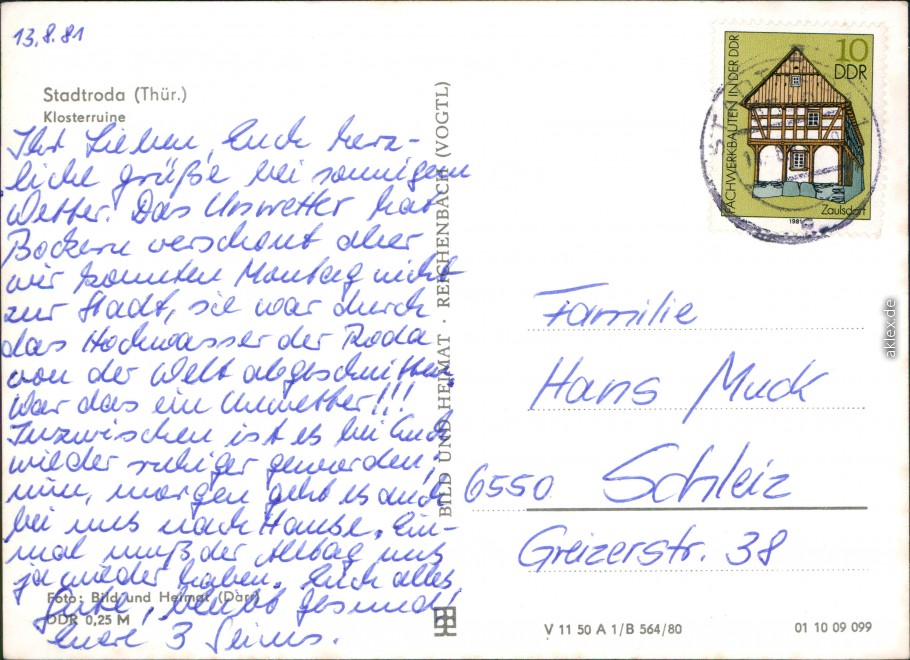 13.8.81
Stadtroda (Thür.)
Klosterruine
Ihr Lieben, Euch herz-
liche Grüße bei sonnigem
Wetter. Das Unwetter hat
Bockern verschont aber
wir konnten Montag nicht
zur Stadt, sie war durch
das Hochwasser der Roda
von der Welt abgeschnitten,
war das ein Unwetter!!!
Inzwischen ist es bei Euch
wieder ruhiger geworden,
nun, morgen geht es auch
bei uns nach Hause. Ein-
mal muß der Alltag uns
ja wieder haben. Euch alles
Gute, bleibt gesund!
Eure 3
Foto: Bild und Heimat (Darr)
DDR 0,25 M
BILD UND HEIMAT · REICHENBACH (VOGTL)
FACHWERKBAUTEN IN DER DDR
10
DDR
Zaulsdorf
1981
Familie
Hans Muck
6550 Schleiz
Greizerstr. 38
V 11 50 A 1/B 564/80
01 10 09 099
aklex.de